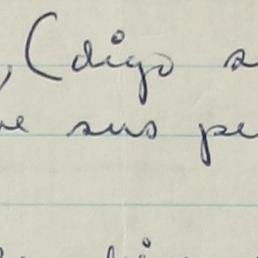 , (digo s
e sus pe